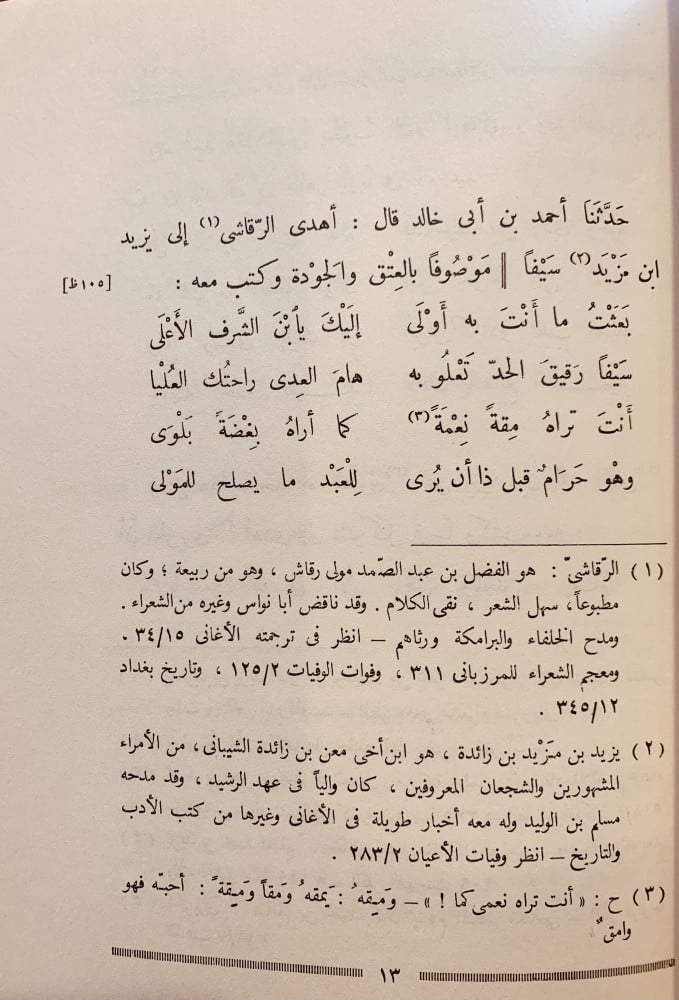 حَدَّثَنَا أحمد بن أبى خالد قال : أهدى الرّقاشى (١) إلى يزيد
ابن مَزْيَد (٢) سَيْفاً ‖ مَوْصُوفاً بالعِتْق والجَوْدة وكتب معه :
[١٠٥ظ]
بَعَثْتُ ما أَنْتَ به أَوْلَى إلَيْكَ يأبْنَ الشَّرف الأَعْلَى
سَيْفاً رَقيقَ الحدّ تَعْلُو به هامَ العِدى راحتُك العُلْيا
أَنْتَ تراهُ مِقةً نِعْمَةً (٣) كما أراهُ بِغْضَةً بَلْوَى
وهْو حَرَامٌ قبل ذا أن يُرى لِلْعَبْد ما يصلح للمَوْلى
(١) الرّقاشىّ : هو الفضل بن عبد الصّمد مولى رقاش ، وهو من ربيعة ؛ وكان
مطبوعاً، سهل الشعر ، نقى الكلام . وقد ناقض أبا نواس وغيره من الشعراء .
ومدح الخلفاء والبرامكة ورثاهم – انظر فى ترجمته الأغانى ٣٤/١٥ .
ومعجم الشعراء للمرزبانى ٣١١ ، وفوات الوفيات ١٢٥/٢ ، وتاريخ بغداد
٣٤٥/١٢ .
(٢) يزيد بن مَزْيد بن زائدة ، هو ابن أخى معن بن زائدة الشيبانى، من الأمراء
المشهورين والشجعان المعروفين ، كان والياً فى عهد الرشيد ، وقد مدحه
مسلم بن الوليد وله معه أخبار طويلة فى الأغانى وغيرها من كتب الأدب
والتاريخ – انظر وفيات الأعيان ٢٨٣/٢ .
(٣) ح : « أنت تراه نعمى كما ! » – وَمِيقهُ : يَمِقهُ وَمَقاً وَمِيقةً : أحبّه فهو
وامقٌ
١٣